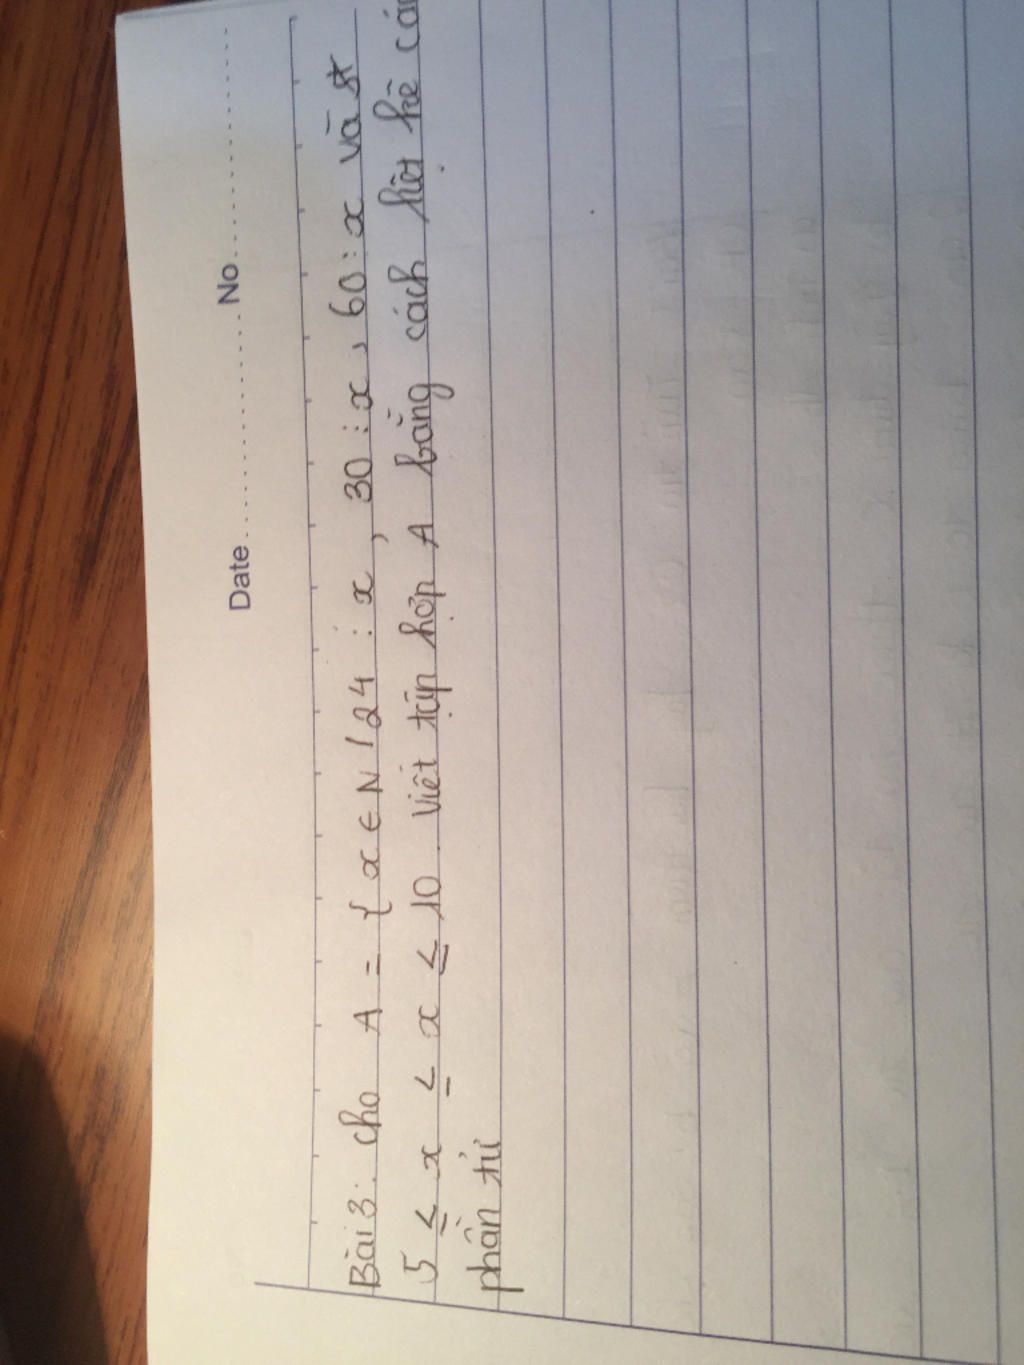 Date.......................No.......................
Bài 3: cho A = { x ∈ N / 24 ⋮ x, 30 ⋮ x, 60 : x và
5 ≤ x ≤ x ≤ 10. Viết tập hợp A bằng cách liệt kê
phần tử